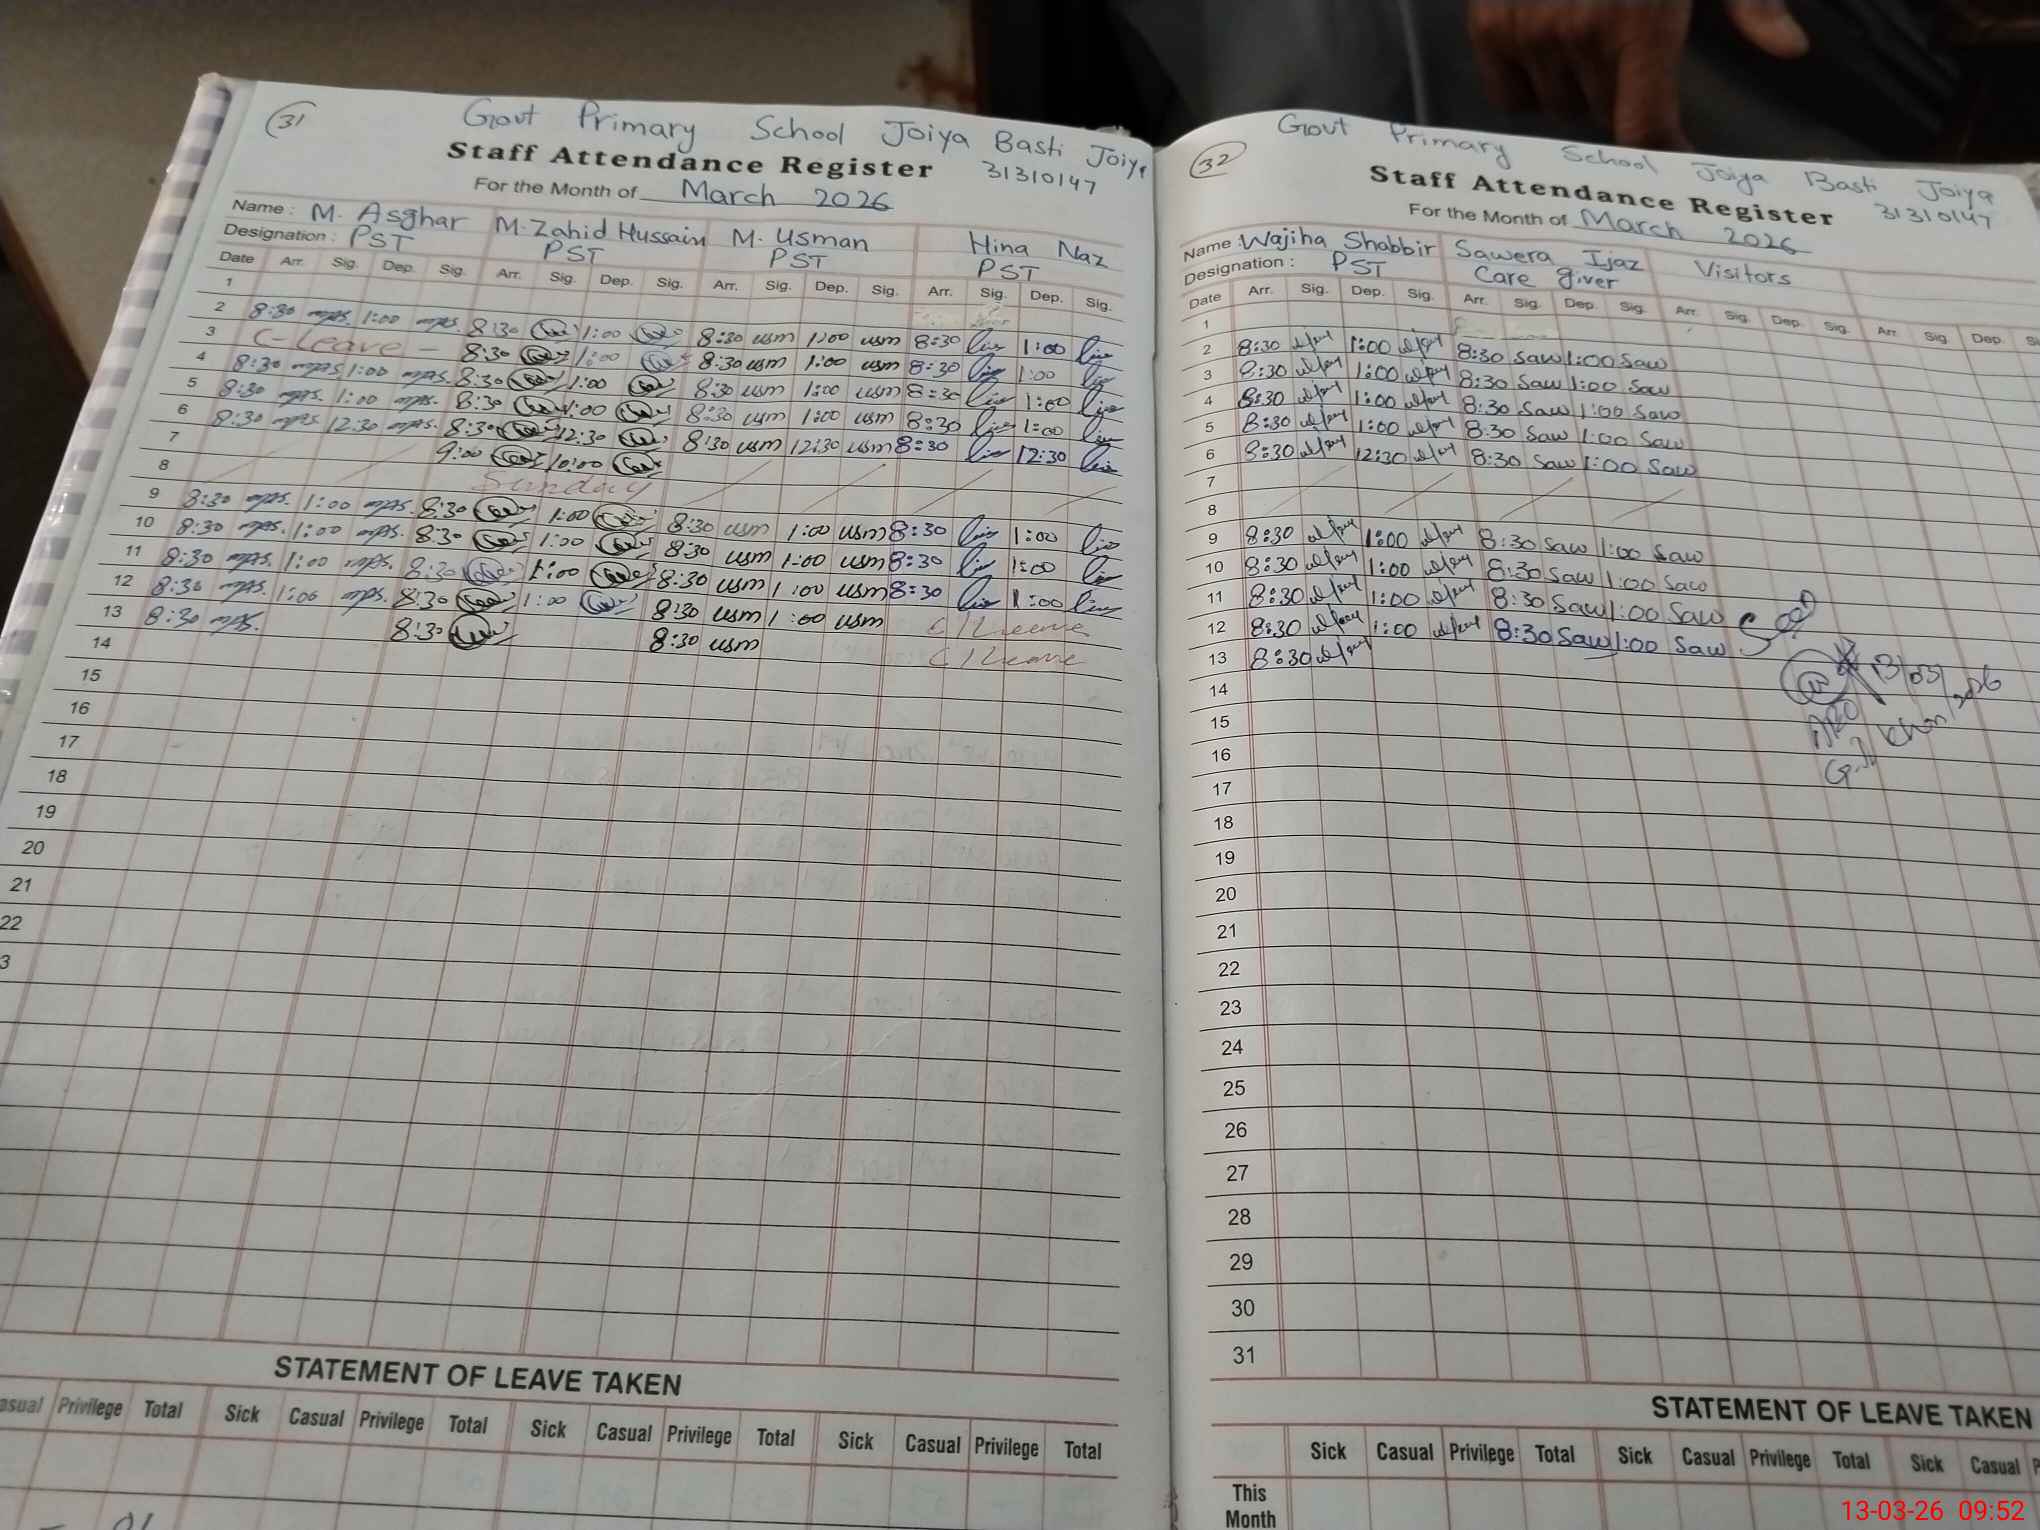 31
Govt Primary School Joiya Basti Joiya
Staff Attendance Register 31310147
For the Month of March 2026
Name : M. Asghar M. Zahid Hussain M. Usman Hina Naz
Designation : PST PST PST PST
Date Arr. Sig. Dep. Sig. Arr. Sig. Dep. Sig. Arr. Sig. Dep. Sig. Arr. Sig. Dep. Sig.
1
2 8:30 1:00 8:30 1:00 8:30 usm 1:00 usm 8:30 1:00
3 C-Leave - 8:30 1:00 8:30 usm 1:00 usm 8:30 1:00
4 8:30 1:00 8:30 1:00 8:30 usm 1:00 usm 8:30 1:00
5 8:30 1:00 8:30 1:00 8:30 usm 1:00 usm 8:30 1:00
6 8:30 12:30 8:30 12:30 8:30 usm 12:30 usm 8:30 12:30
7 9:00 10:00
8 Sunday
9 8:30 1:00 8:30 1:00 8:30 usm 1:00 usm 8:30 1:00
10 8:30 1:00 8:30 1:00 8:30 usm 1:00 usm 8:30 1:00
11 8:30 1:00 8:30 1:00 8:30 usm 1:00 usm 8:30 1:00
12 8:30 1:00 8:30 1:00 8:30 usm 1:00 usm C/Leave
13 8:30 8:30 8:30 usm C/Leave
14
15
16
17
18
19
20
21
22
3
STATEMENT OF LEAVE TAKEN
asual Privilege Total Sick Casual Privilege Total Sick Casual Privilege Total Sick Casual Privilege Total
32
Govt Primary School Joiya Basti Joiya
Staff Attendance Register 31310147
For the Month of March 2026
Name : Wajiha Shabbir Sawera Ijaz Visitors
Designation : PST Care giver
Date Arr. Sig. Dep. Sig. Arr. Sig. Dep. Sig. Arr. Sig. Dep. Sig. Arr. Sig. Dep. Si
1
2 8:30 1:00 8:30 Saw 1:00 Saw
3 8:30 1:00 8:30 Saw 1:00 Saw
4 8:30 1:00 8:30 Saw 1:00 Saw
5 8:30 1:00 8:30 Saw 1:00 Saw
6 8:30 12:30 8:30 Saw 1:00 Saw
7
8
9 8:30 1:00 8:30 Saw 1:00 Saw
10 8:30 1:00 8:30 Saw 1:00 Saw
11 8:30 1:00 8:30 Saw 1:00 Saw
12 8:30 1:00 8:30 Saw 1:00 Saw
13 8:30
13/03/2026
14
15
16
17
18
19
20
21
22
23
24
25
26
27
28
29
30
31
STATEMENT OF LEAVE TAKEN
Sick Casual Privilege Total Sick Casual Privilege Total Sick Casual P
This Month
13-03-26 09:52